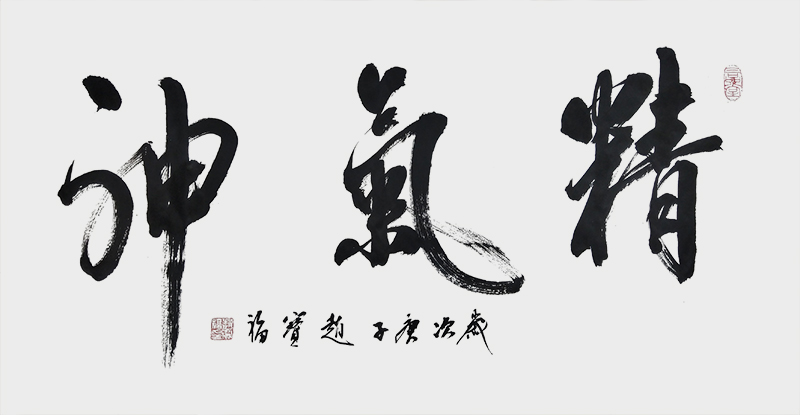 精氣神
歲次庚子趙寶福